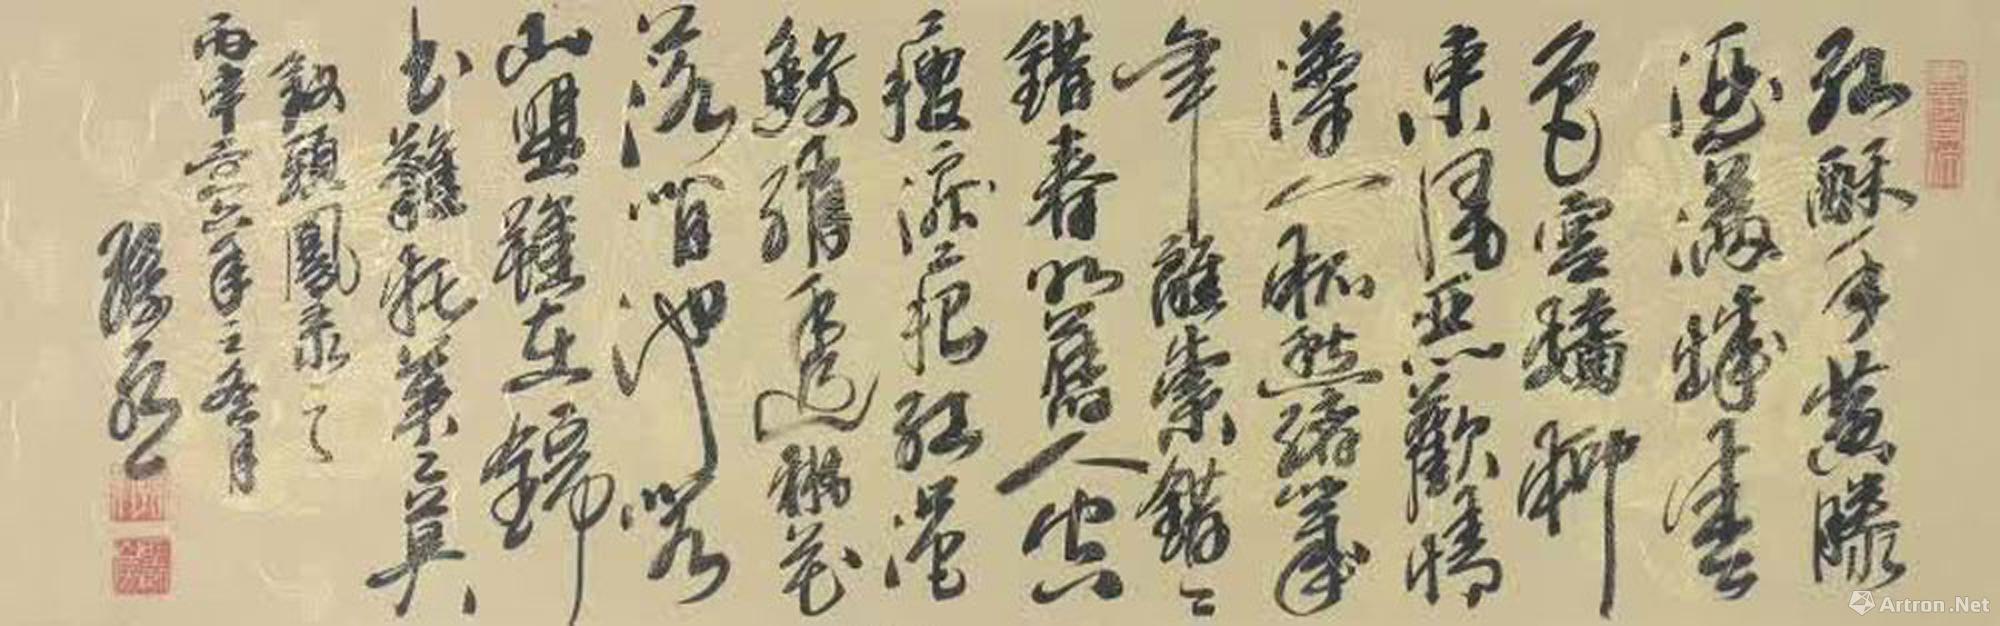 紅酥手黃滕
酒滿城春
色宮牆柳
東風惡歡情
薄一杯愁緒幾
年離索錯々
錯春如舊人空
瘦淚痕紅浥
鮫綃透桃花
落閒池閣
山盟雖在錦
書難托莫々莫
釵頭鳳录之
丙申二〇一六年之冬月
Artron.Net